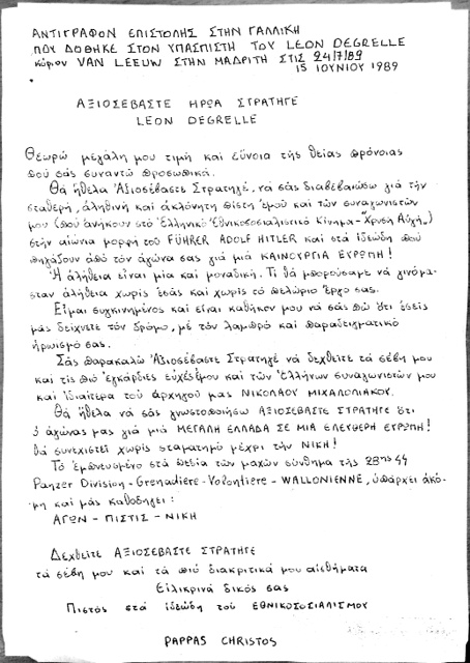 ΑΝΤΙΓΡΑΦΟΝ ΕΠΙΣΤΟΛΗΣ ΣΤΗΝ ΓΑΛΛΙΚΗ
ΠΟΥ ΔΟΘΗΚΕ ΣΤΟΝ ΥΠΑΣΠΙΣΤΗ ΤΟΥ LEON DEGRELLE
κύριον VAN LEEUW ΣΤΗΝ ΜΑΔΡΙΤΗ ΣΤΙΣ 24/7/89
15 ΙΟΥΝΙΟΥ 1989
ΑΞΙΟΣΕΒΑΣΤΕ ΗΡΩΑ ΣΤΡΑΤΗΓΕ
LEON DEGRELLE
Θεωρώ μεγάλη μου τιμή και εύνοια της θείας πρόνοιας
πού σάς συναντώ προσωπικά.
Θά ήθελα Αξιοσέβαστε Στρατηγέ, νά σάς διαβεβαιώσω γιά τήν
σταθερή, αληθινή και ακλόνητη πίστη εμού και τών συναγωνιστών
μου (πού ανήκουν στό Ελληνικό Εθνικοσοσιαλιστικό Κίνημα-"Χρυσή Αυγή")
στήν αιώνια μορφή τού FÜHRER ADOLF HITLER και στά ιδεώδη πού
πηγάζουν από τόν αγώνα σας γιά μιά ΚΑΙΝΟΥΡΓΙΑ ΕΥΡΩΠΗ!
Ή αλήθεια είναι μία και μοναδική. Τί θά μπορούσαμε νά γινόμα-
σταν αλήθεια χωρίς εσάς και χωρίς τό πελώριο έργο σας.
Είμαι συγκινημένος και είναι καθήκον μου νά σάς πώ ότι εσείς
μάς δείχνετε τόν δρόμο, μέ τόν λαμπρό και παραδειγματικό
ηρωισμό σας.
Σάς παρακαλώ Αξιοσέβαστε Στρατηγέ νά δεχθείτε τά σέβη μου
και τίς πιό εγκάρδιες ευχές εμού και τών Ελλήνων συναγωνιστών μου
και ιδιαίτερα τού αρχηγού μας ΝΙΚΟΛΑΟΥ ΜΙΧΑΛΟΛΙΑΚΟΥ.
Θά ήθελα νά σάς γνωστοποιήσω ΑΞΙΟΣΕΒΑΣΤΕ ΣΤΡΑΤΗΓΕ ότι
ό αγώνας μας γιά μιά ΜΕΓΑΛΗ ΕΛΛΑΔΑ ΣΕ ΜΙΑ ΕΛΕΥΘΕΡΗ ΕΥΡΩΠΗ!
θά συνεχιστεί χωρίς σταματημό μέχρι τήν ΝΙΚΗ!
Τό εμπνευσμένο στά πεδία τών μαχών σύνθημα τής 28ης SS
Panzer Division-Grenadiere-Volontiere-WALLONIENNE, υπάρχει ακό-
μη και μάς καθοδηγεί:
ΑΓΩΝ - ΠΙΣΤΙΣ - ΝΙΚΗ
Δεχθείτε ΑΞΙΟΣΕΒΑΣΤΕ ΣΤΡΑΤΗΓΕ
τά σέβη μου και τά πιό διακριτικά μου αισθήματα
Ειλικρινά δικός σας
Πιστός στά ιδεώδη τού ΕΘΝΙΚΟΣΟΣΙΑΛΙΣΜΟΥ
PAPPAS CHRISTOS